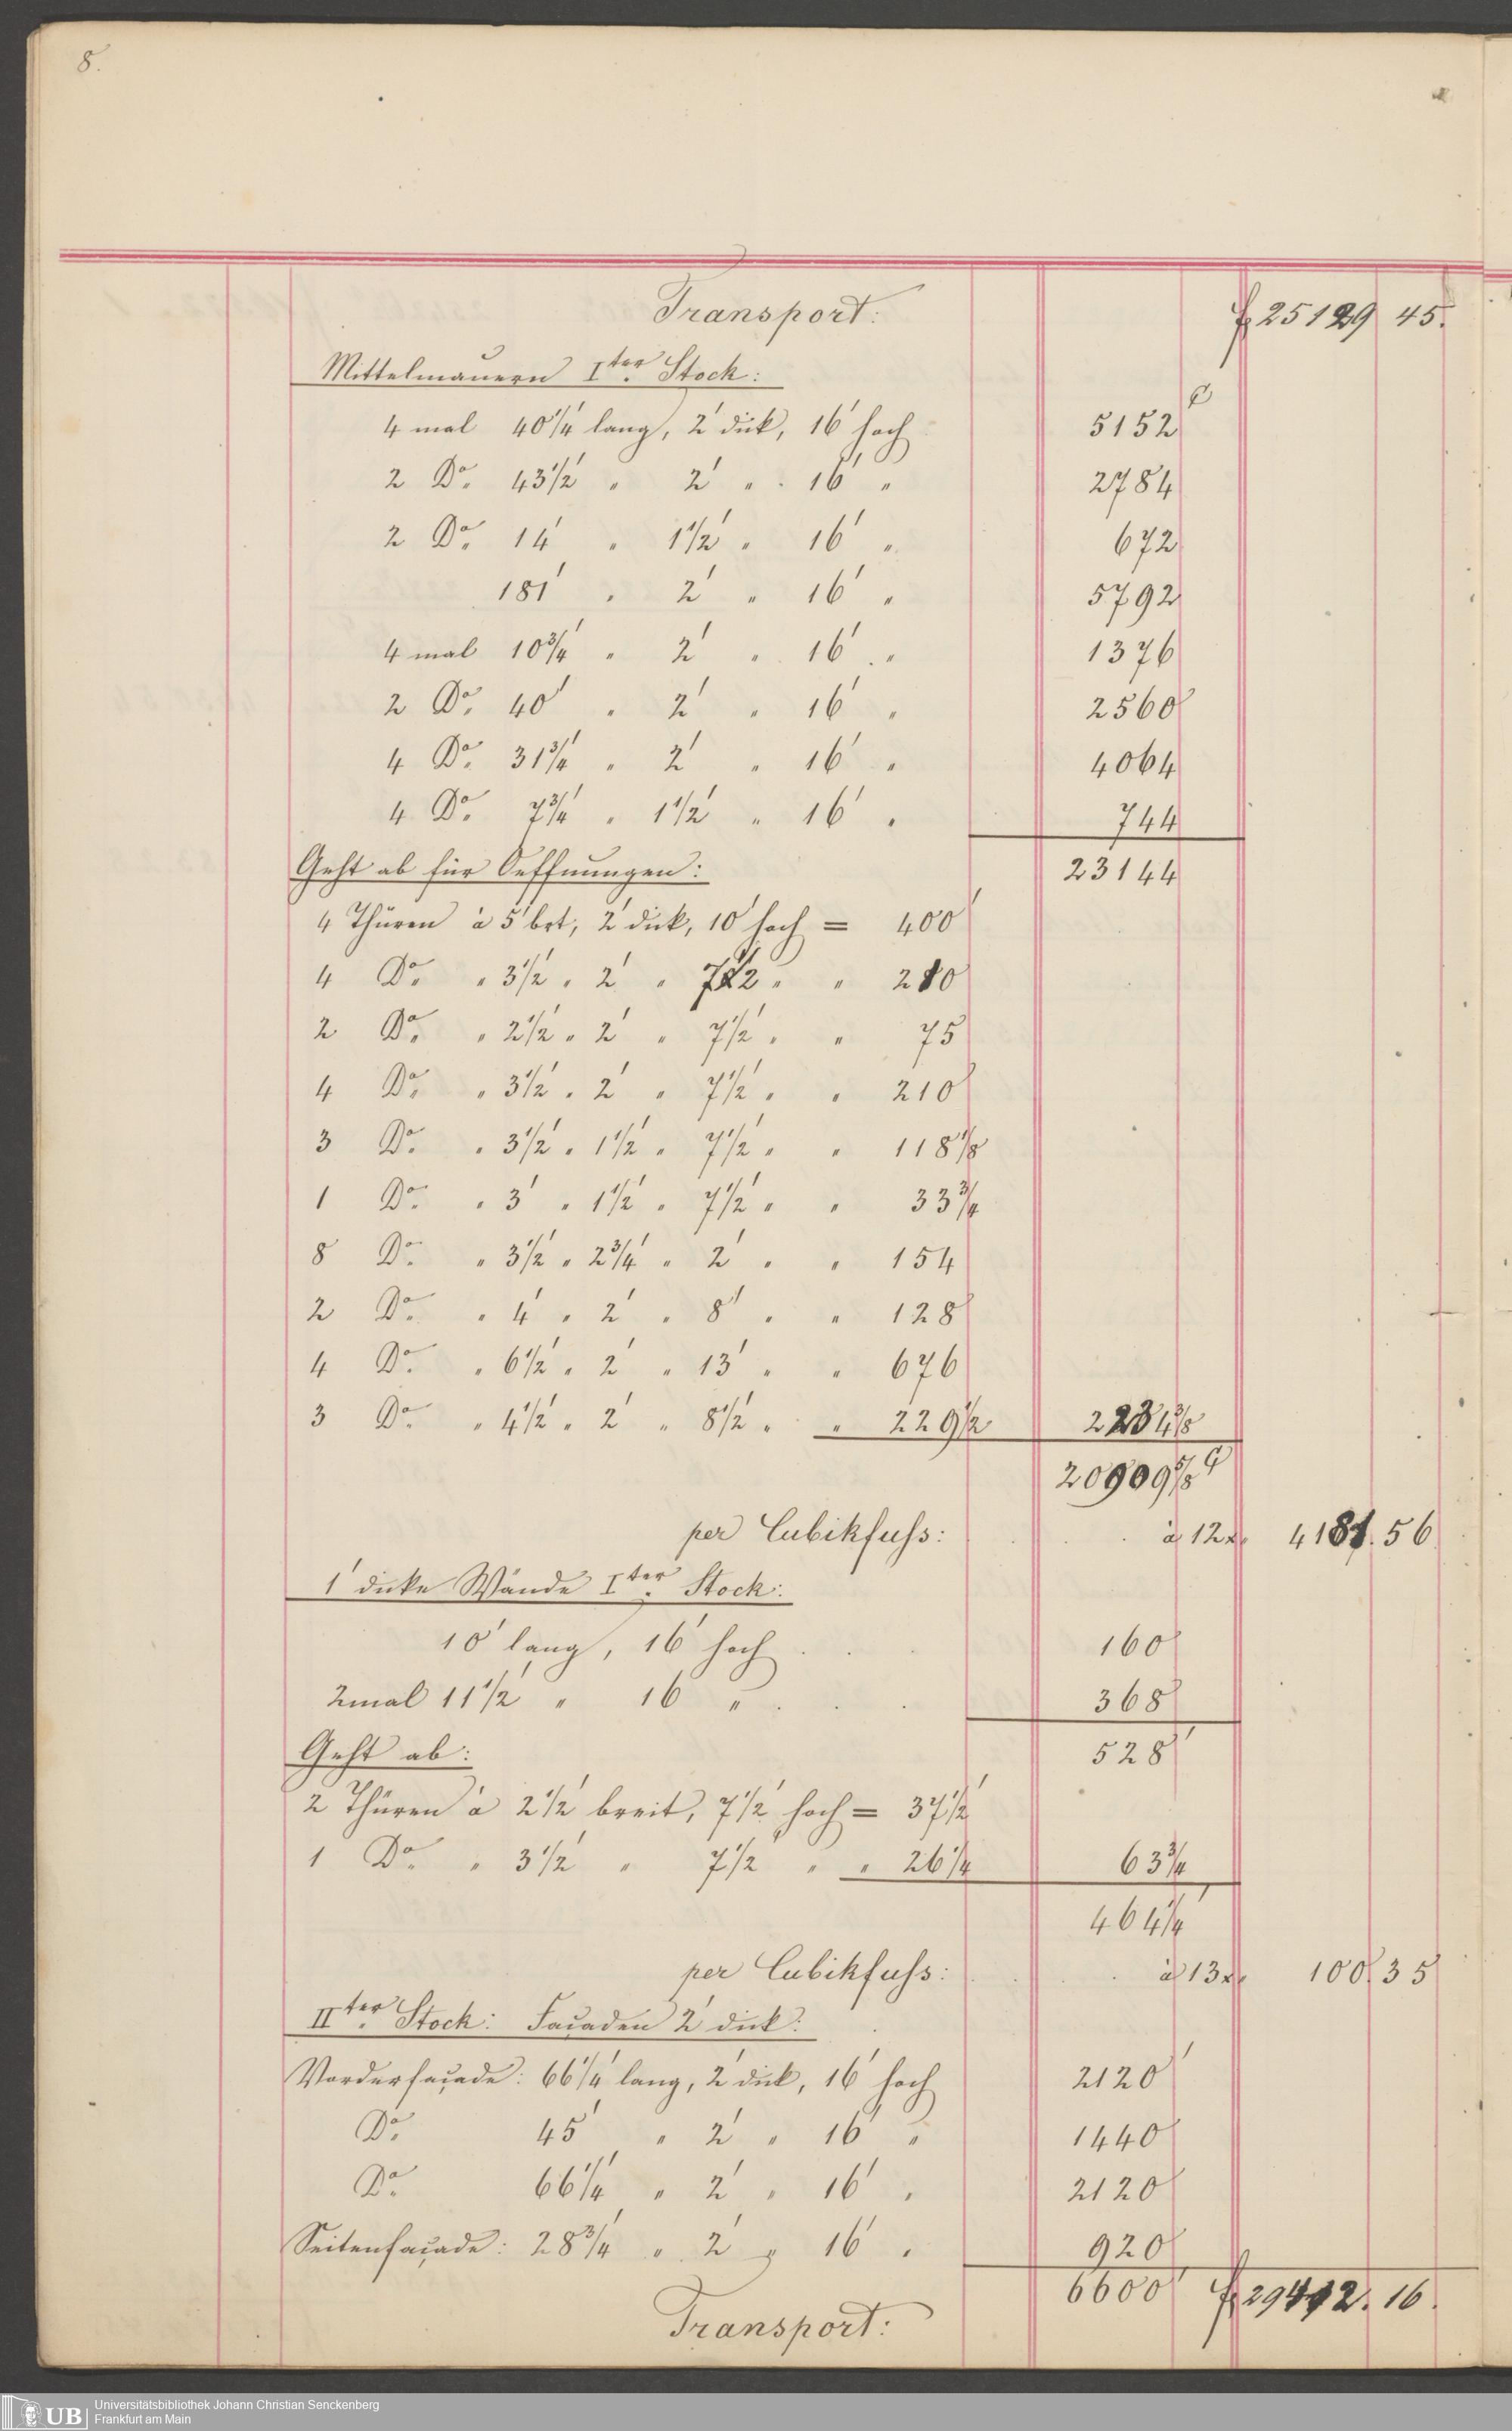 8.
Transport: f 25129 45.
Mittelmauern Iter. Stock:
4 mal 40 1/4' lang, 2' dick, 16' hoch 5152 c'
2 Do. 43 1/2' " 2' " 16' " 2784
2 Do. 14' " 1 1/2' " 16' " 672
181' " 2' " 16' " 5792
4 mal 10 3/4' " 2' " 16' " 1376
2 Do. 40' " 2' " 16' " 2560
4 Do. 31 3/4' " 2' " 16' " 4064
4 Do. 7 3/4' " 1 1/2' " 16' " 744
Geht ab für Oeffnungen: 23144
4 Thüren à 5' brt, 2' dick, 10' hoch = 400'
4 Do. " 3 1/2' " 2' " 7 1/2' " " 210
2 Do. " 2 1/2' " 2' " 7 1/2' " " 75
4 Do. " 3 1/2' " 2' " 7 1/2' " " 210
3 Do. " 3 1/2' " 1 1/2' " 7 1/2' " " 118 1/8
1 Do. " 3' " 1 1/2' " 7 1/2' " " 33 3/4
8 Do. " 3 1/2' " 2 3/4' " 2' " " 154
2 Do. " 4' " 2' " 8' " " 128
4 Do. " 6 1/2' " 2' " 13' " " 676
3 Do. " 4 1/2' " 2' " 8 1/2' " " 229 1/2 2234 3/8
20909 5/8 c'
per Cubikfuss: à 12 x. 4181. 56
1' dicke Wände Iter. Stock:
10' lang, 16' hoch 160
2mal 11 1/2' " 16' " 368
Geht ab: 528'
2 Thüren à 2 1/2' breit, 7 1/2' hoch = 37 1/2'
1 Do. " 3 1/2' " 7 1/2' " " 26 1/4 63 3/4
464 1/4'
per Cubikfuss: à 13 x. 100. 35
IIter. Stock: Façaden 2' dick:
Vorderfaçade: 66 1/4' lang, 2' dick, 16' hoch 2120'
Do. 45' " 2' " 16' " 1440
Do. 66 1/4' " 2' " 16' " 2120
Seitenfaçade: 28 3/4' " 2' " 16' " 920
6600' f 29412. 16.
Transport:
UB Universitätsbibliothek Johann Christian Senckenberg
Frankfurt am Main